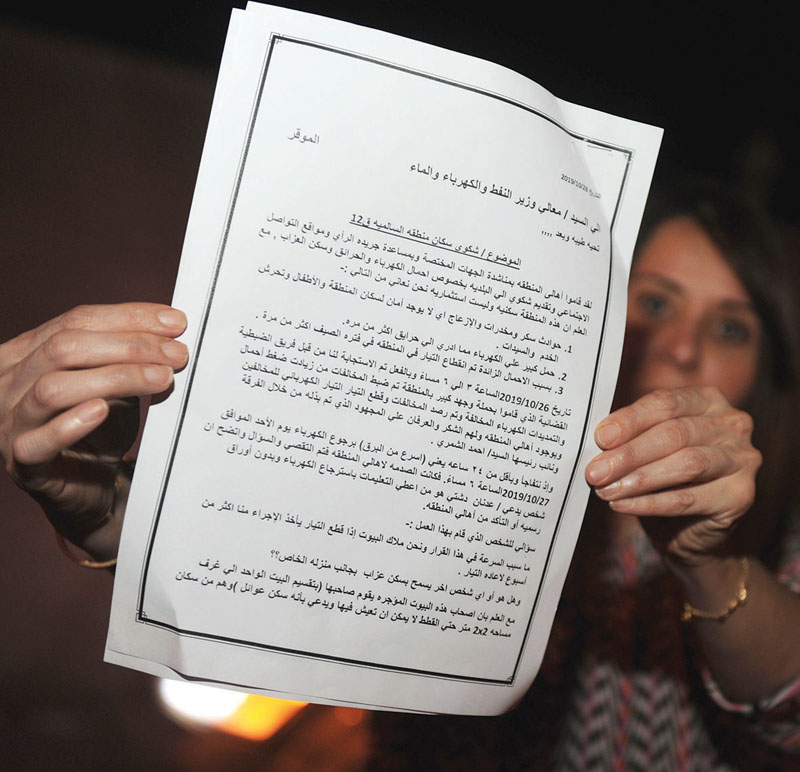 التاريخ 2019/10/28
الموقر
الي السيد / معالي وزير النفط والكهرباء والماء
تحيه طيبه وبعد ,,,,
الموضوع / شكوي سكان منطقه السالميه ق12
لقد قاموا أهالى المنطقه بمناشدة الجهات المختصة وبمساعدة جريده الرأي ومواقع التواصل
الاجتماعي وتقديم شكوي الي البلديه بخصوص احمال الكهرباء والحرائق وسكن العزاب , مع
العلم ان هذه المنطقة سكنيه وليست استثماريه نحن نعاني من التالي :-
1. حوادث سكر ومخدرات والازعاج اي لا يوجد أمان لسكان المنطقة والأطفال وتحرش
الخدم والسيدات .
2. حمل كبير علي الكهرباء مما ادري الي حرايق اكثر من مره.
3. بسبب الاحمال الزائدة تم إنقطاع التيار في المنطقه في فتره الصيف اكثر من مرة .
تاريخ 2019/10/26الساعة ٣ الي ٦ مساءً وبالفعل تم الاستجابة لنا من قبل فريق الضبطية
القضائية الذي قاموا بحملة وجهد كبير بالمنطقة تم ضبط المخالفات من زيادت ضغط أحمال
والتمديدات الكهرباء المخالفة وتم رصد المخالفات وقطع التيار التيار الكهربائي للمخالفين
وبوجود أهالي المنطقه ولهم الشكر والعرفان علي المجهود الذي تم بذله من خلال الفرقة
ونانب رئيسها السيد/ احمد الشمري .
وإذ نتفاجأ وبأقل من ٢٤ ساعه يعني (اسرع من البرق) برجوع الكهرباء يوم الأحد الموافق
2019/10/27الساعة ٦ مساءً. فكانت الصدمه لاهالي المنطقه فتم التقصي والسؤال واتضح ان
شخص يدعي/ عدنان دشتي هو من اعطي التعليمات باسترجاع الكهرباء وبدون أوراق
رسميه أو التأكد من أهالي المنطقه.
سؤالي للشخص الذي قام بهذا العمل :-
ما سبب السرعة في هذا القرار ونحن ملاك البيوت إذا قطع التيار يأخذ الإجراء منا اكثر من
أسبوع لاعاده التيار .
وهل هو أو اي شخص اخر يسمح بسكن عزاب بجانب منزله الخاص؟؟
مع العلم بان اصحاب هذه البيوت المؤجره يقوم صاحبها (بتقسيم البيت الواحد الي غرف
مساحه 2x2 متر حتي القطط لا يمكن ان تعيش فيها ويدعي بأنه سكن عوائل )وهم من سكان